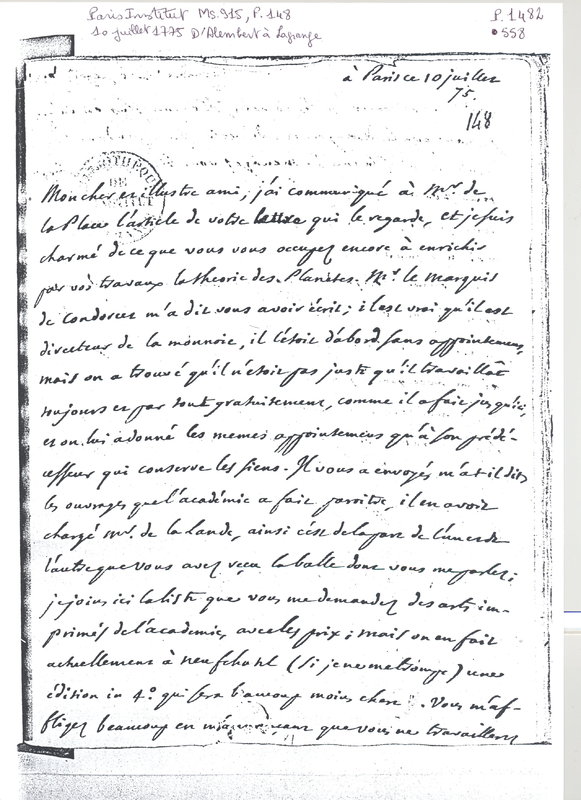 Paris Institut Ms. 915, P. 148
10 juillet 1775 D'Alembert à Lagrange
P. 1482
•558
à Paris ce 10 juillet
75.
148
Mon cher et illustre ami, j'ai communiqué à Mr. de
la Place l'article de votre lettre qui le regarde, et je suis
charmé de ce que vous vous occupez encore à enrichir
par vos travaux la theorie des Planetes. Mr. le Marquis
de Condorcet m'a dit vous avoir écrit; il est vrai qu'il est
directeur de la monnoie, il l'étoit d'abord sans appointemens,
mais on a trouvé qu'il n'étoit pas juste qu'il travaillât
toujours et par tout gratuitement, comme il a fait jusqu'ici,
et on lui a donné les memes appointemens qu'à son prédé-
cesseur qui conserve les siens. Il vous a envoyés m'a t'il dit,
les ouvrages que l'académie a fait paroitre, il en avoit
chargé Mr. de la Lande, ainsi c'est de la part de l'un et de
l'autre que vous avez reçu la balle dont vous me parlez;
je joins ici la liste que vous me demandez des arts im-
primés de l'academie, avec les prix; mais on en fait
actuellement à Neufchatel (si je ne me trompe) une
édition in 4o. qui sera beaucoup moins chere. Vous m'af-
fligez beaucoup en que vous ne travaillerez